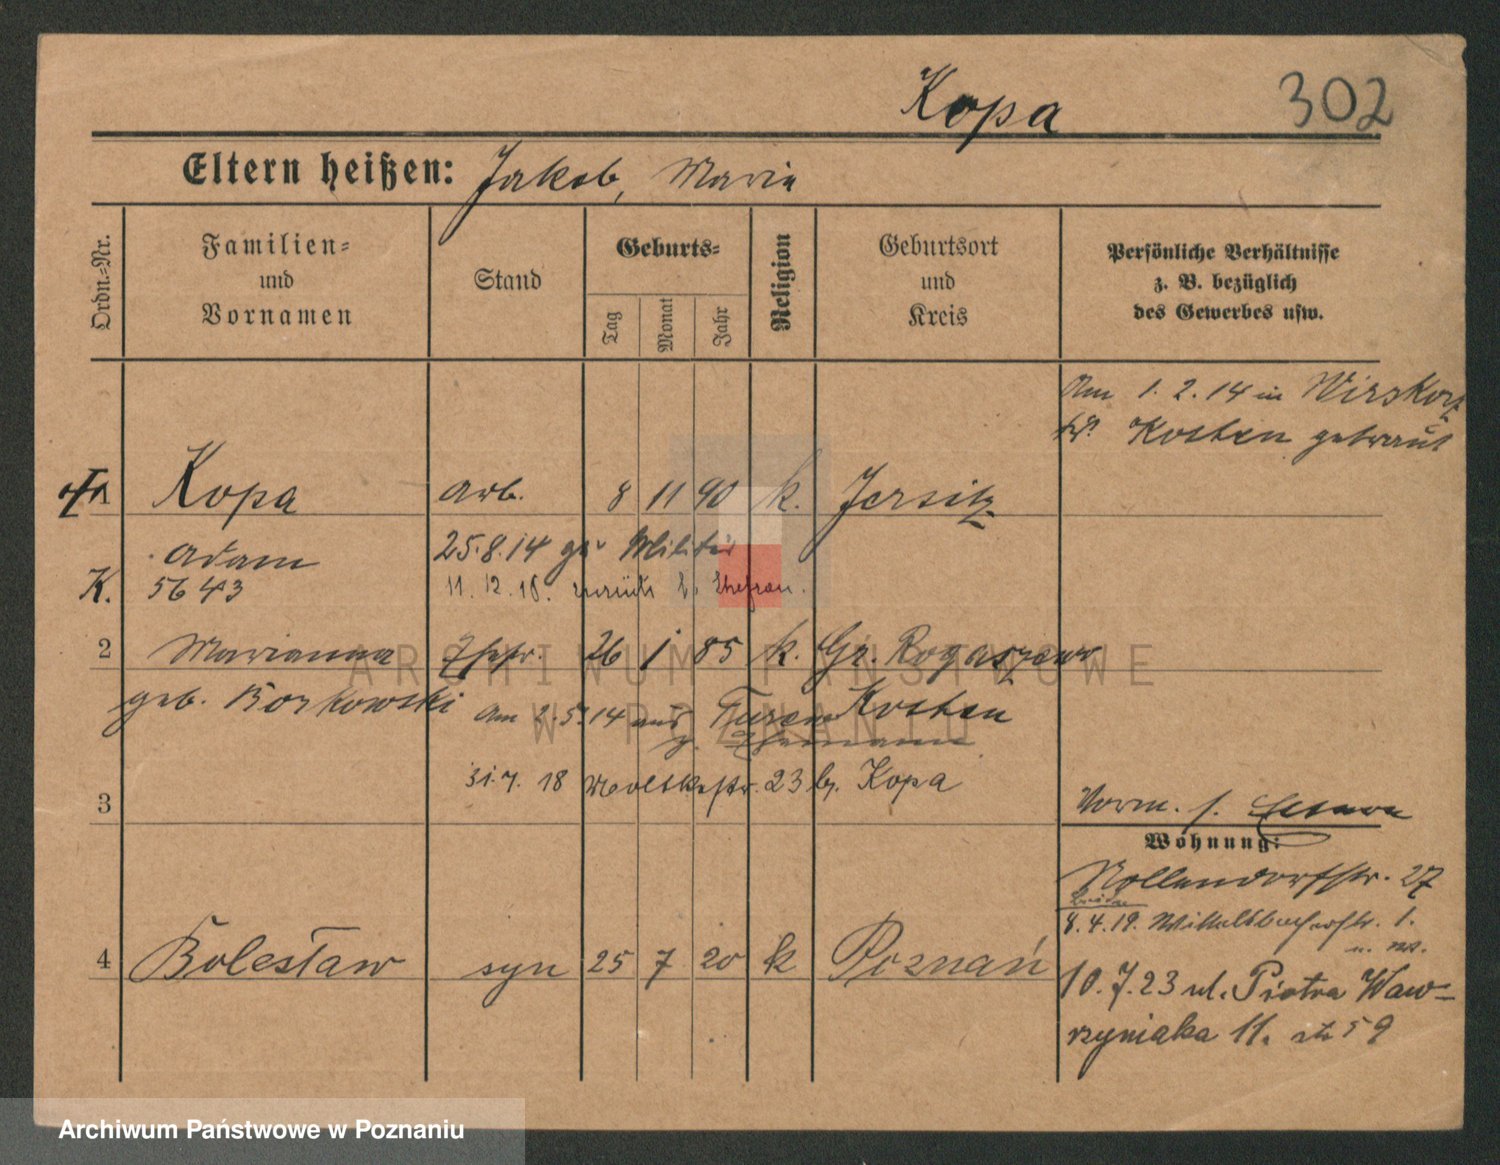 Kopa 302
Eltern heißen: Jakob, Maria
Ordn.-Nr.
Familien-
und
Vornamen
Stand
Geburts-
Tag
Monat
Jahr
Religion
Geburtsort
und
Kreis
Persönliche Verhältnisse
z. B. bezüglich
des Gewerbes usw.
Am 1. 2. 14 in
Kosten getraut
1 Kopa Arb. 8 11 90 k. Jersitz
Adam 25.8.14 Militär
K. 5643 11. 12. 18. zurück b. Ehefrau.
2 Marianna Ehefr. 26 1 85 k. Gr. Rogaszewo
geb. Borkowski Am 2.5.14 aus Turew Kosten
z. Ehemann
31.7. 18 Moltkestr. 23 b. Kopa
3
Vorm. s.
Wohnung:
Nollendorfstr. 27
8.4.19. Wittelsbacherstr. 1.
4 Bolesław syn 25 7 20 k Poznań
10.7.23 ul. Piotra Waw-
rzyniaka 11. 59
ARCHIWUM PAŃSTWOWE
W POZNANIU
Archiwum Państwowe w Poznaniu